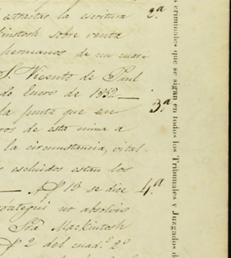 estractar la escritura 2ª
Kintosh sobre venta
hermanos de un mar-
S. Vicente de Paul
de Enero de 1852.—
la junta que en 3ª
ros de esta mina a
la circunstancia, vital
escluidos estan los
— f. 13 se dice 4ª
no abolirse
Sra Mackintosh
f. 2 del cuadº. 2º
s criminales que se sigan en todos los Tribunales y Juzgados d